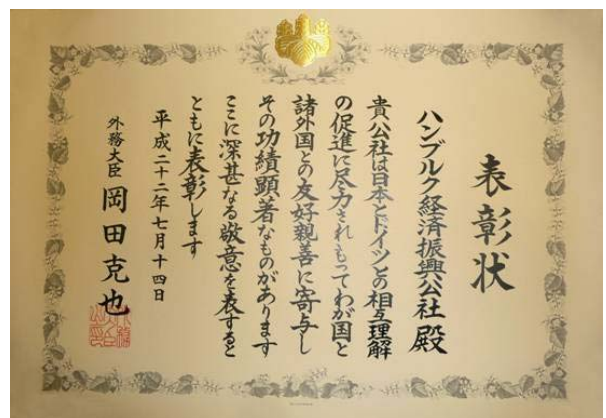 表彰状
ハンブルク経済振興公社 殿
貴公社は日本とドイツとの相互理解
の促進に尽力されもってわが国と
諸外国との友好親善に寄与し
その功績顕著なものがあります
ここに深甚なる敬意を表すると
ともに表彰します
平成二十二年七月十四日
外務大臣 岡田克也